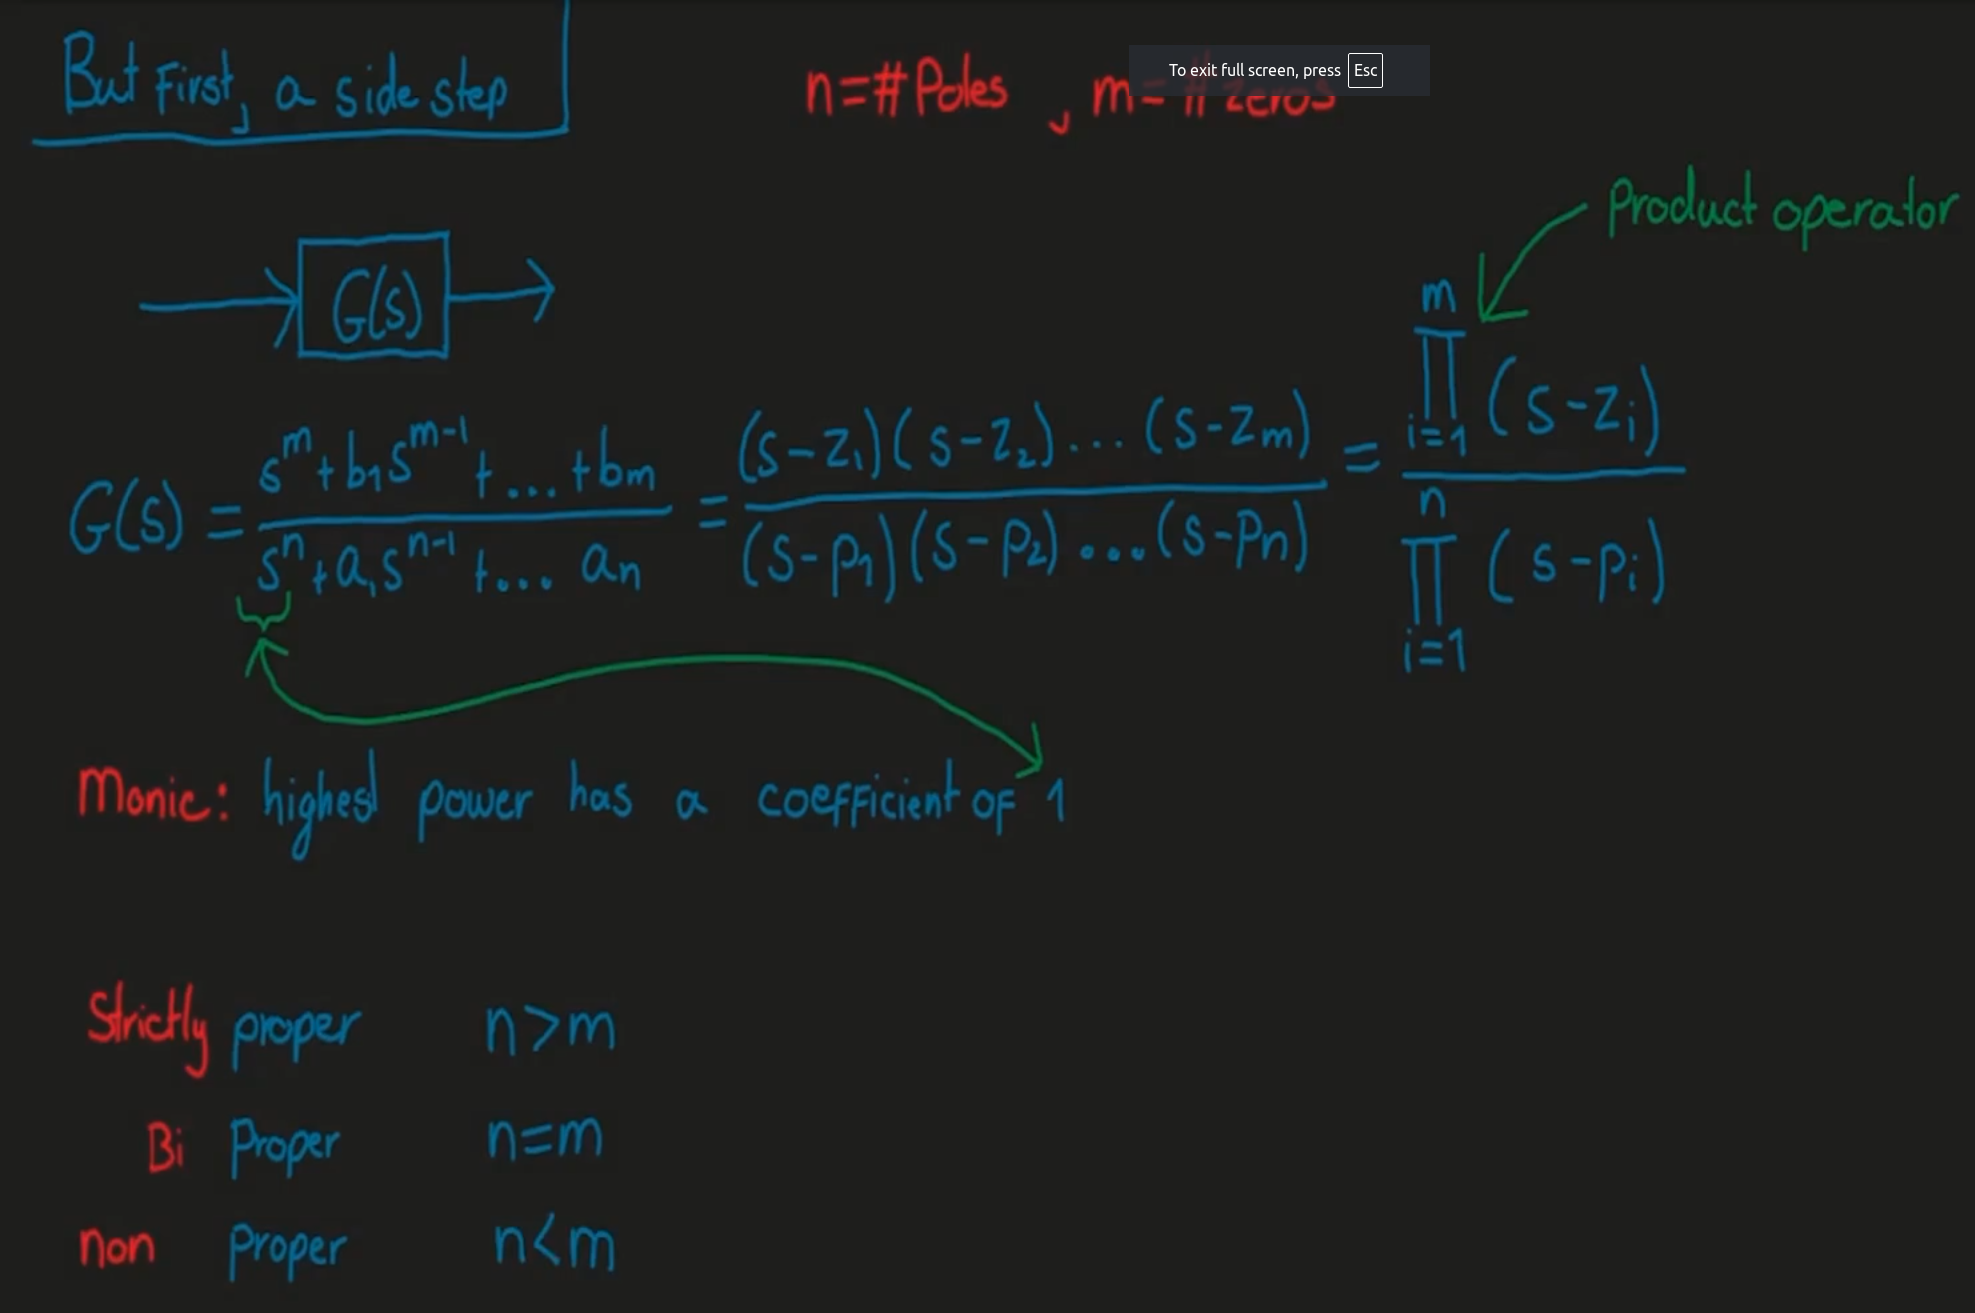 But First, a side step
n=#Poles , m=#zeros
To exit full screen, press Esc
Product operator
G(s)
G(s) = \frac{s^m+b_1s^{m-1}+...+b_m}{s^n+a_1s^{n-1}+... a_n} = \frac{(s-z_1)(s-z_2)...(s-z_m)}{(s-p_1)(s-p_2)...(s-p_n)} = \frac{\prod_{i=1}^{m}(s-z_i)}{\prod_{i=1}^{n}(s-p_i)}
Monic: highest power has a coefficient of 1
Strictly proper n>m
Bi Proper n=m
non Proper n<m